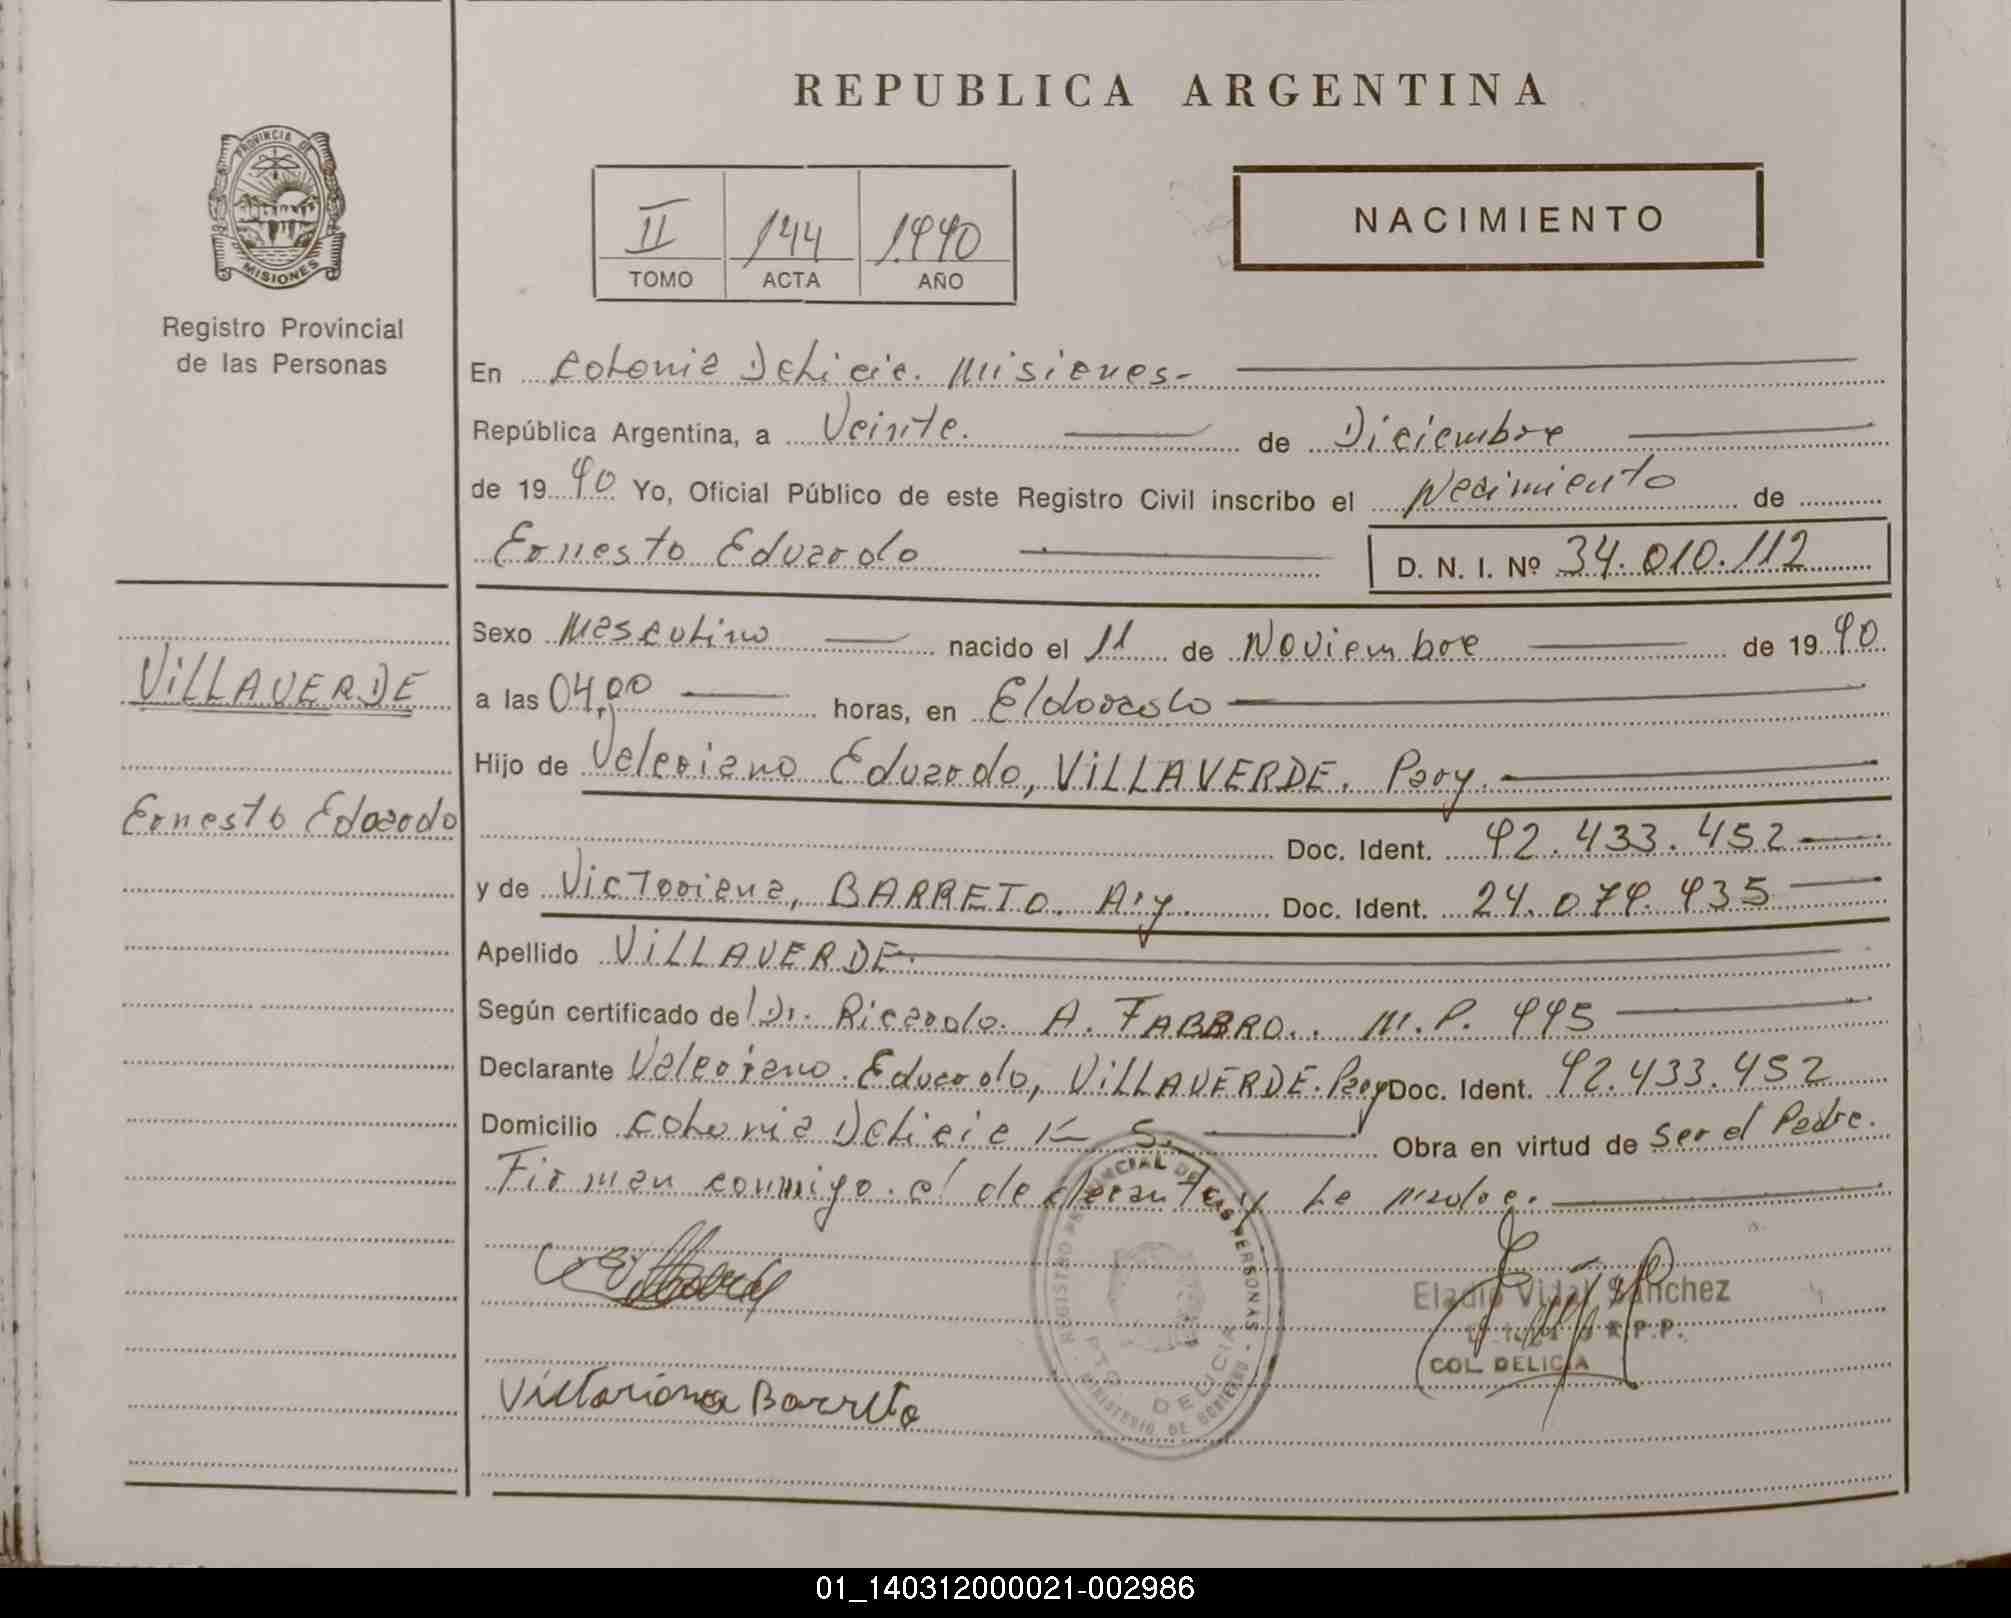 REPUBLICA ARGENTINA
PROVINCIA DE
MISIONES
Registro Provincial
de las Personas
II 144 1990
TOMO ACTA AÑO
NACIMIENTO
En Colonia Delicia. Misiones-
República Argentina, a Veinte. de Diciembre
de 1990 Yo, Oficial Público de este Registro Civil inscribo el Nacimiento de
Ernesto Eduardo D. N. I. Nº 34.010.112
Sexo Masculino nacido el 11 de Noviembre de 1990
VILLAVERDE
a las 04,00 horas, en Eldorado
Hijo de Valeriano Eduardo, VILLAVERDE. Pary.
Ernesto Eduardo
Doc. Ident. 92.433.452
y de Victoriana, BARRETO. A'y. Doc. Ident. 24.079.935
Apellido VILLAVERDE.
Según certificado del Dr. Ricardo. A. FABBRO.. M.P. 995
Declarante Valeriano. Eduardo, VILLAVERDE. Pary Doc. Ident. 92.433.452
Domicilio Colonia Delicia K 5. Obra en virtud de Ser el Padre.
Firman conmigo. el declarante y la madre.
REGISTRO PROVINCIAL DE LAS PERSONAS
PTO DELICIA
MINISTERIO DE GOBIERNO
Eladio Vidal Sanchez
R.P.P.
COL. DELICIA
Victoriana Barreto
01_140312000021-002986